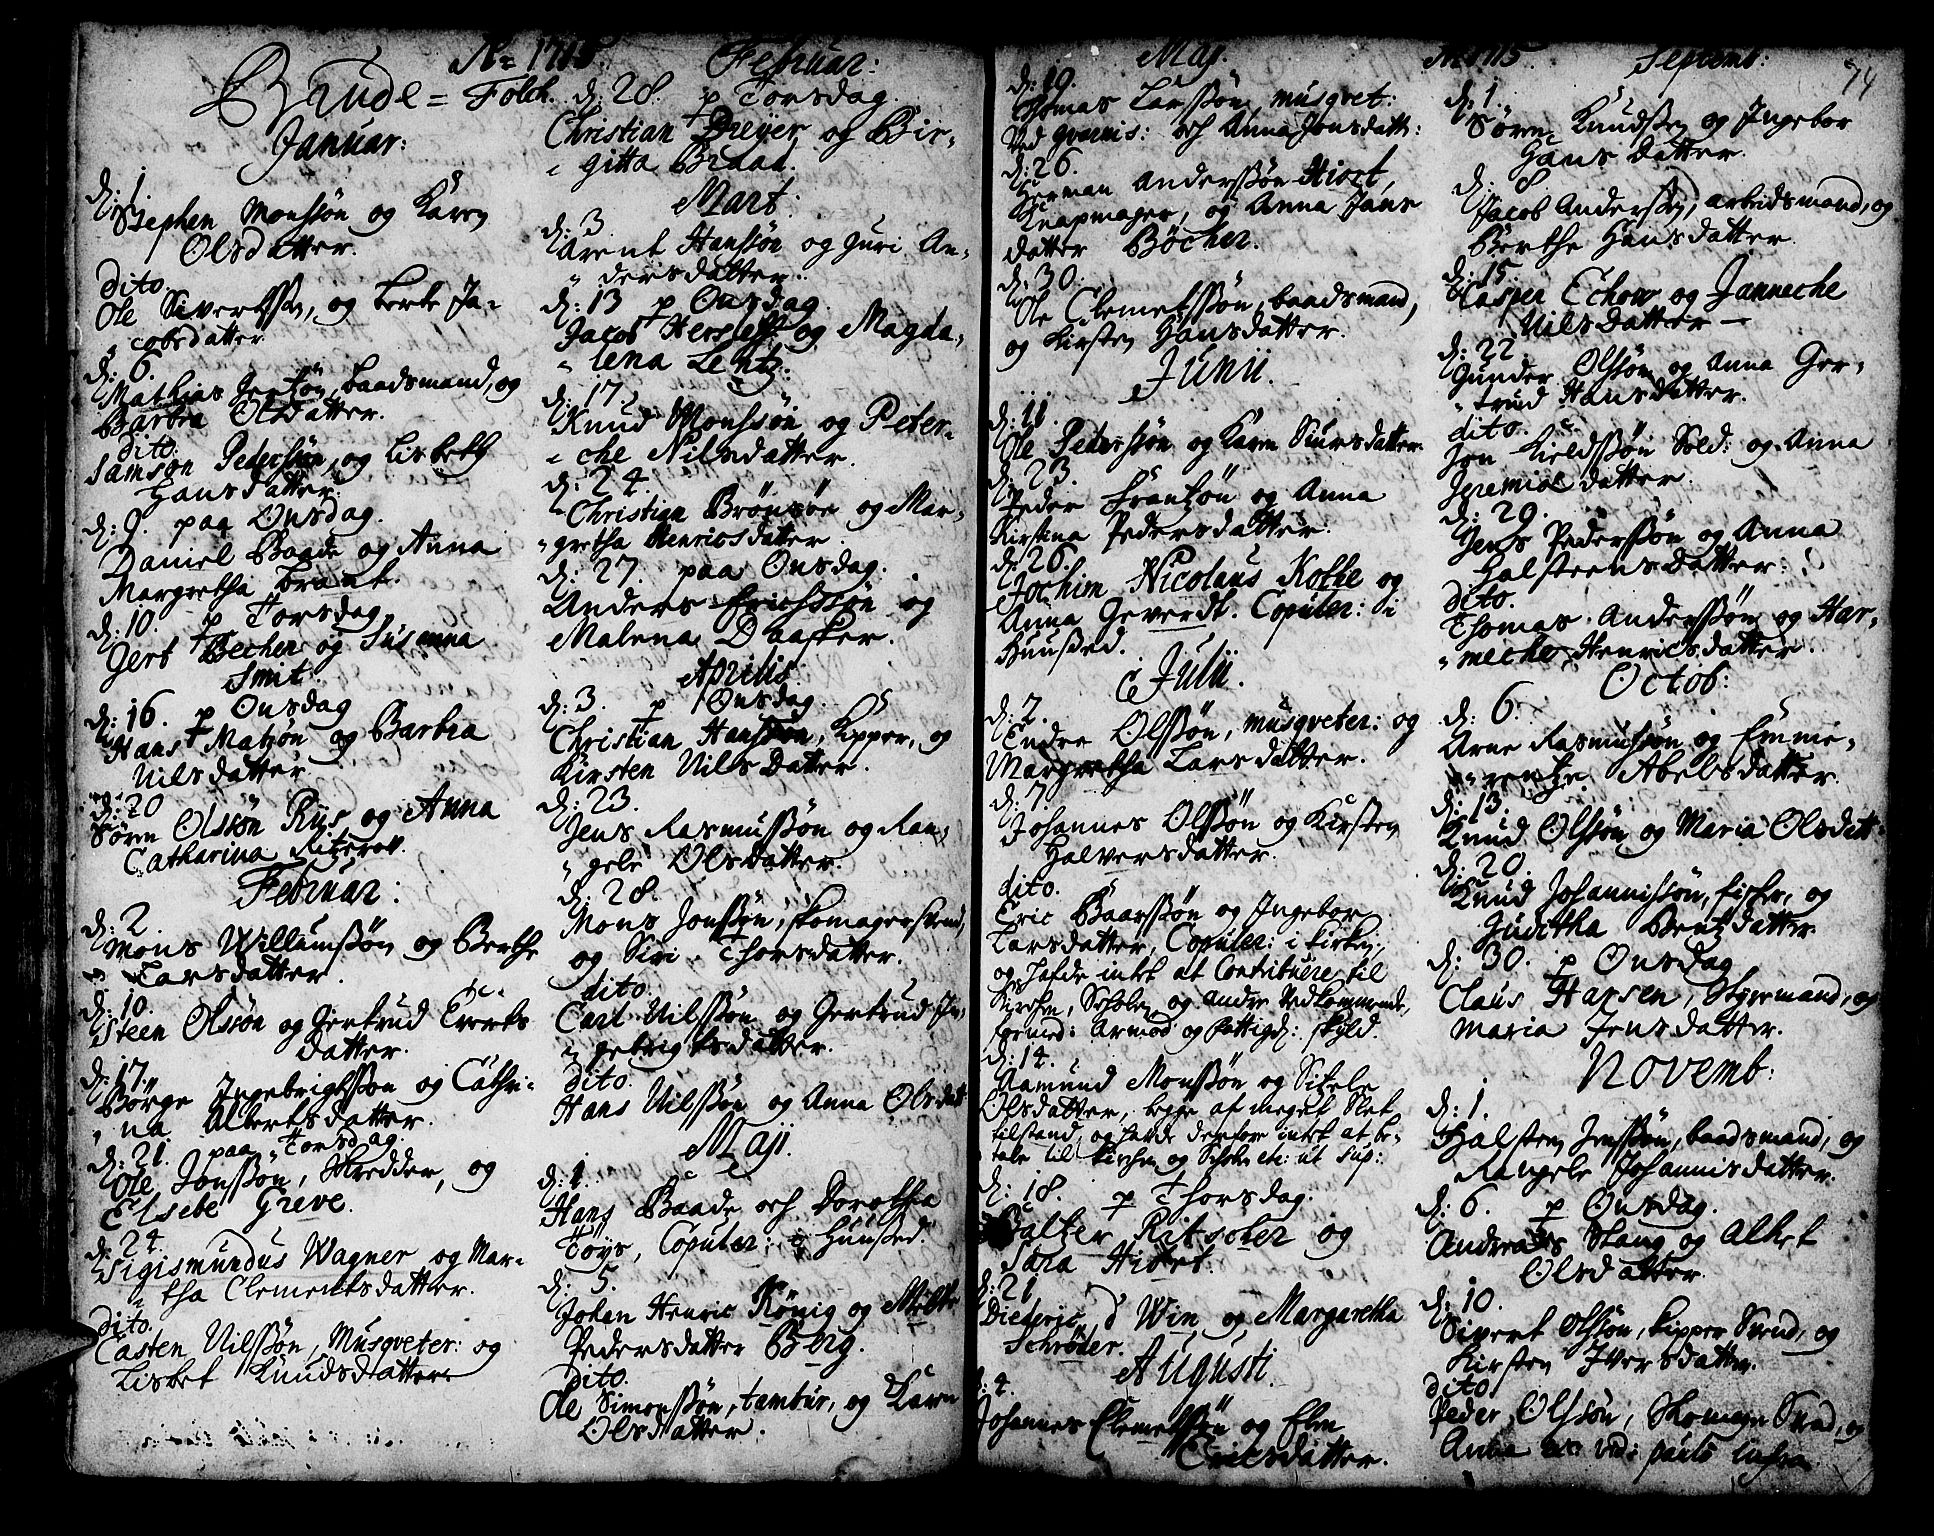 Aö 1715
Brude = Folck.
Januar:
d: 1.
Stephen Monssøn og Karen
Olsdatter.
dito.
Ole Sivertssøn, og Berte Ja-
cobsdatter
d: 6.
Mathias Jentzøn, baadsmand, og
Barbra Olsdatter.
dito.
Samson Pedersøn, og Lisbeth
Hansdatter.
d: 9. paa Onsdag.
Daniel Baade og Anna
Margretha Brant.
d: 10. p Torsdag
Gert Becher og Susanna
Smit.
d: 16. p Onsdag
Hans Matzøn og Barbra
Nilsdatter
d: 20
Søren Olssøn Rijs og Anna
Catharina
Februar:
d: 2.
Mons Willumssøn og Berthe
Larsdatter.
d: 10.
Steen Olssøn og Gertrud Everts
datter.
d: 17.
Børge Ingebrigtssøn og Cathri-
na Albertsdatter.
d: 21. paa Torsdag.
Ole Jonssøn, Skredder, og
Elsebe Greve.
d: 24.
Sigismundus Wagner og Mar-
tha Clementsdatter.
dito.
Casten Nilssøn, Musqveter: og
Lisbet Knudsdatter
Februar:
d: 28. p Torsdag.
Christian Dreyer og Bir-
gitta Braad.
Mart:
d: 3
Arent Hanssøn og Guri An-
dersdatter.
d: 13 p Onsdag
Jacob Hersleff og Magda-
lena Lentz.
d: 17.
Knud Monssøn og Peter-
che Nilsdatter.
d: 24.
Christian Brønsøn og Mar-
gretha Henricsdatter.
d: 27. paa Onsdag.
Anders Ericssøn og
Malena Daasker.
Aprilis:
d: 3. p Onsdag.
Christian Hanssøn, Kipper, og
Kirsten Nilsdatter.
d: 23.
Jens Rasmussøn og Ran-
gele Olsdatter.
d: 28.
Mons Jonssøn, skomagersvend,
og Siri Thorsdatter.
dito.
Carl Nilssøn og Gertrud In-
gebrigtsdatter.
dito.
Hans Nilssøn og Anna Olsdatt
Maji.
d: 1.
Hans Baade och Dorothea
Tøys, Copuler: i Huused.
d: 5.
Johan Henric König og Mette
Pedersdatter Berg.
dito.
Ole Simonssøn, tambur, og Karen
Olsdatter.
Maj.
d: 19.
Thomas Larssøn, musqvet:
Ved gvarnis: och Anna Jonsdatt:
d: 26.
Herman Anderssøn Hiort,
Knapmager, og Anna Jans
datter Bøcher.
d: 30.
Ole Clemetssøn, baadsmand,
og Kirsten Hansdatter.
Junii.
d: 11.
Ole Pederssøn og Karen Siursdatter.
d: 23.
Peder Frantzøn og Anna
Kirstina Pedersdatter.
d: 26.
Jochim Nicolaus Kothe og
Anna Geverdt. Copuler: i
Huused.
Julii.
d: 2.
Endre Olssøn, musqveter: og
Margretha Larsdatter.
d: 7.
Johannes Olssøn og Kirsten
Halversdatter.
dito.
Eric Baarssøn og Ingebor
Larsdatter, Copuler: i kirken,
og hafde intet at Contribuere til
Kirchen, Scholen og andre Vedkommende,
formed: armod og fattigd: skyld.
d: 14.
Aamund Monssøn og Sitzele
Olsdatter, begge af meget slet
tilstand, og hafde derfore intet at be-
tale til kirchen og Scholen etc: ut sup:
d: 18. p Thorsdag.
Balter Ritscher og
Sara Hiort.
d: 21
Diederic d Win og Margaretha
Schrøder.
Augusti.
d: 4.
Johannes Clemetssøn og Elen
Ericsdatter.
Ao 1715
Septemb:
74
d: 1.
Søren Knudssøn og Ingebor
Hansdatter.
d: 8.
Jacob Anderssøn, arbeidsmand, og
Berthe Hansdatter.
d: 15
Casper Echow og Janneche
Nilsdatter —
d: 22
Gunder Olssøn og Anna Ger-
trud Hansdatter.
dito.
Jon Kieldssøn Sold: og Anna
Jeremiæ datter.
d: 29.
Jens Pederssøn og Anna
Halsteensdatter:
dito.
Thomas Anderssøn og Har-
meche Henricsdatter.
Octob:
d: 6.
Arne Rasmussøn og Emme-
rentze Abelsdatter.
d: 13.
Knud Olssøn og Maria Olsdatt:
d: 20.
Knud Johannissøn, fisker, og
Juditha Bentzdatter
d: 30. p Onsdag
Claus Hansen, Styrmand, og
Maria Jensdatter.
Novemb:
d: 1.
Halsten Jenssøn, baadsmand, og
Rangele Johannisdatter.
d: 6. p Onsdag.
Andreas Stang og Alhet
Olsdatter.
d: 10.
Sivert Olssøn, kipper Svend, og
Kirsten Iversdatter.
dito
Peder Olssøn, Skomager Svend, og
Anna vid: paulo infra